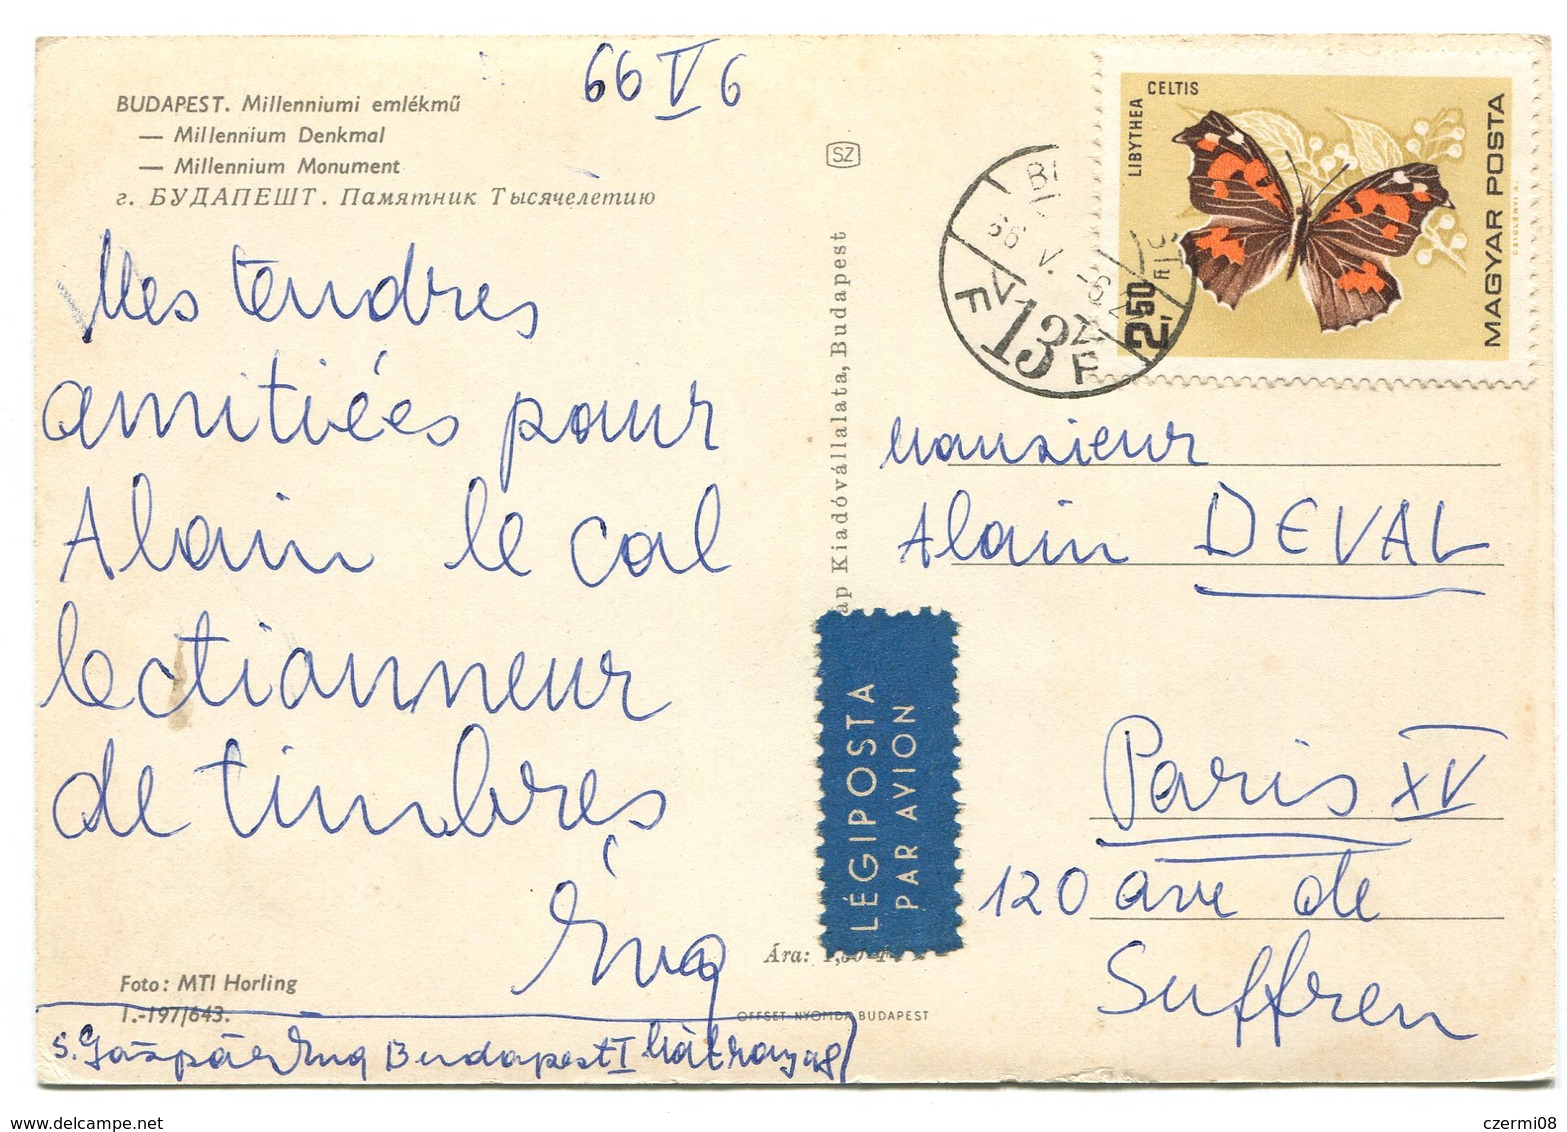 66 V 6
BUDAPEST. Millenniumi emlékmű
— Millennium Denkmal
— Millennium Monument
г. БУДАПЕШТ. Памятник Тысячелетию
Mes tendres
amitiées pour
Alain le col
lectionneur
de timbres
Éva
Foto: MTI Horling
1.-197/643.
s. Gáspár Éva Budapest I
SZ
Kiadóvállalata, Budapest
LÉGIPOSTA
PAR AVION
Ára:
OFFSET-NYOMDA BUDAPEST
66 V.
13
F
F
LIBYTHEA CELTIS
2,50 Ft
MAGYAR POSTA
Monsieur
Alain DEVAL
Paris XV
120 ave de
Suffren
www.delcampe.net
czermi08